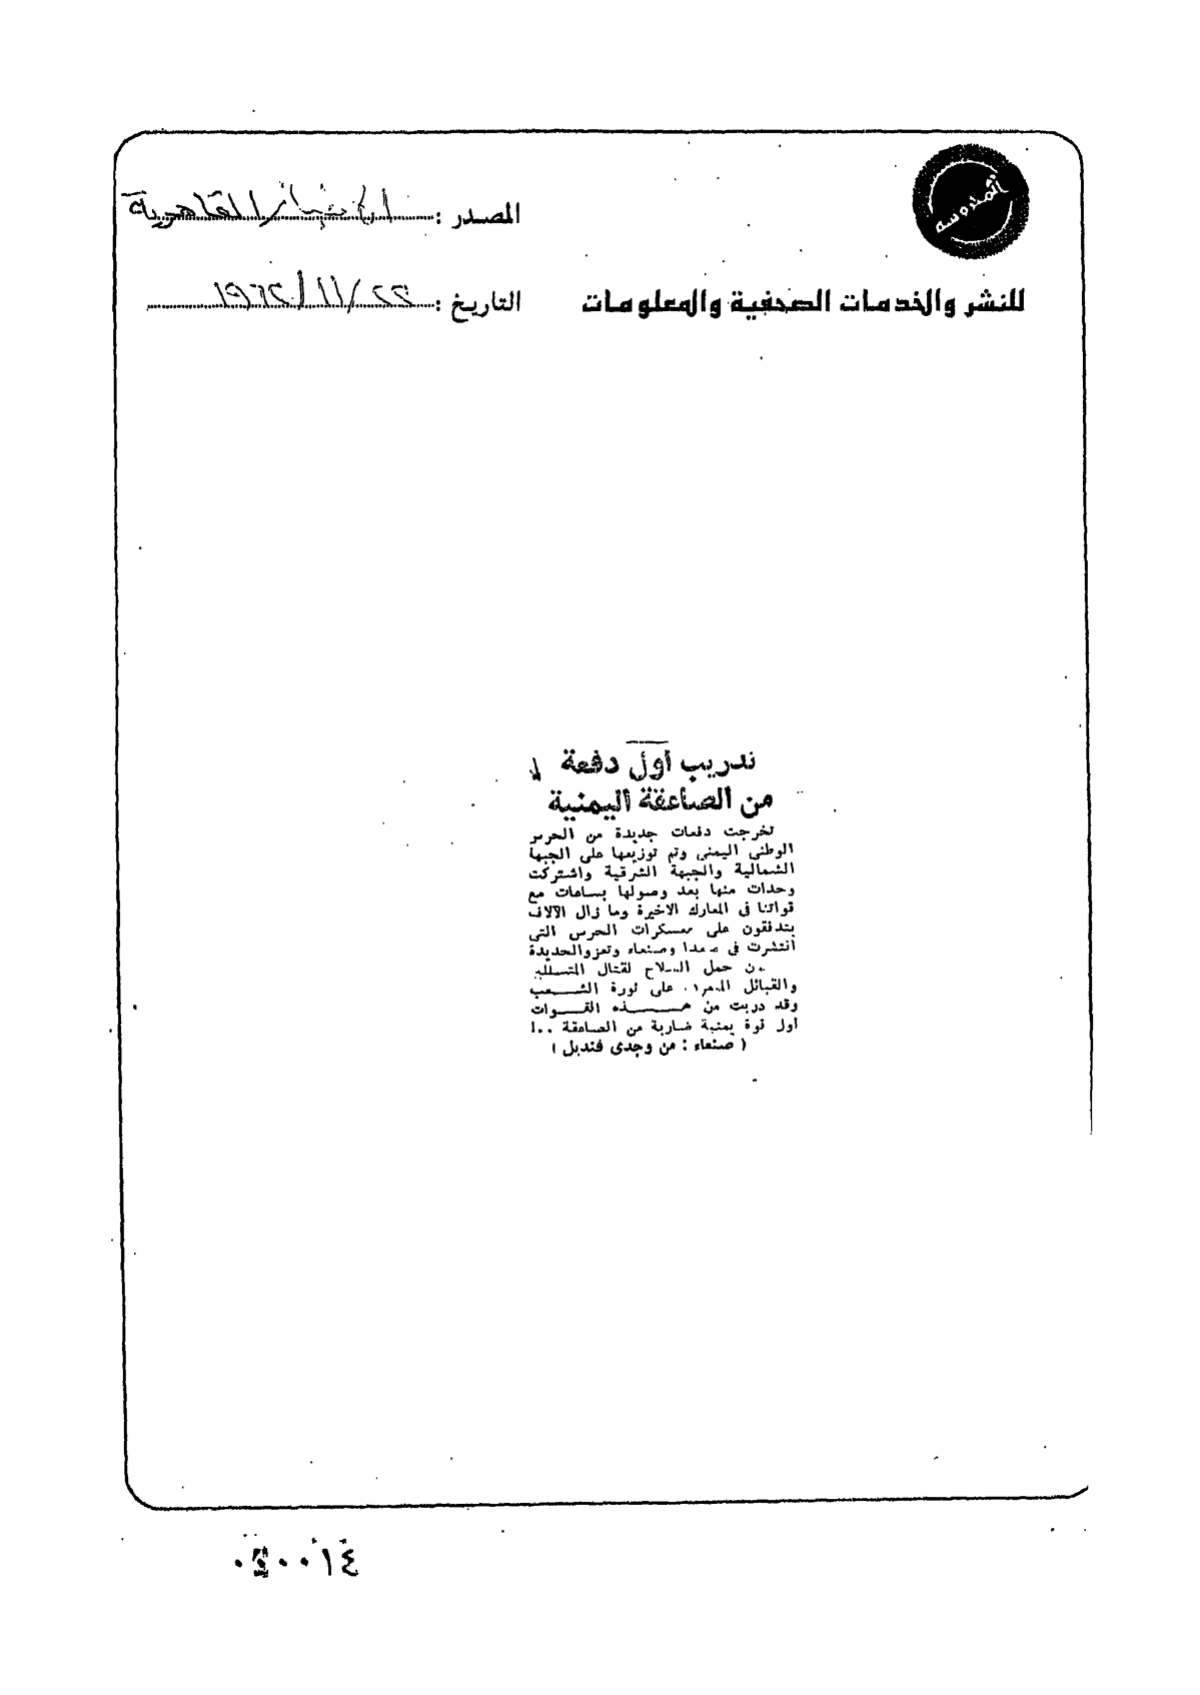 المحروسة
المصدر : الأخبار القاهرية
للنشر والخدمات الصحفية والمعلومات
التاريخ : ٢٢ / ١١ / ١٩٦٢
تدريب أول دفعة
من الصاعقة اليمنية
تخرجت دفعات جديدة من الحرس
الوطنى اليمنى وتم توزيعها على الجبهة
الشمالية والجبهة الشرقية واشتركت
وحدات منها بعد وصولها بساعات مع
قواتنا فى المعارك الاخيرة وما زال الآلاف
يتدفقون على معسكرات الحرس التى
انتشرت فى صعدا وصنعاء وتعز والحديدة
حمل السلاح لقتال
والقبائل على ثورة الشعب
وقد دربت من هذه القوات
اول قوة يمنية ضاربة من الصاعقة ٠٠!
( صنعاء : من وجدى قنديل )